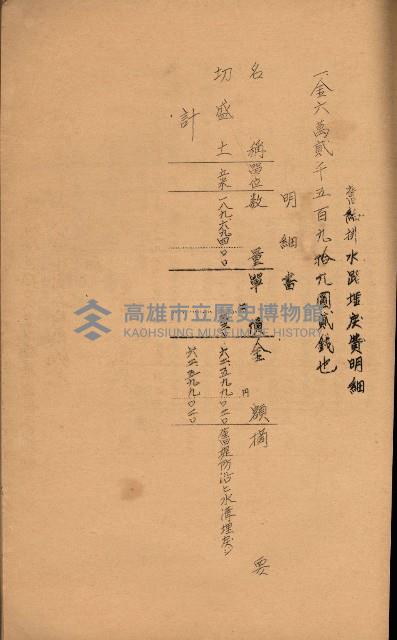 舊 排水路埋戾費明細
一、金六萬貳千五百九拾九圓貳錢也
明細書
名稱 單位 數量 單價 金額 摘要
円
切盛土 立米 一八九、六九四〇〇 六二五九九〇二〇 舊堤防沿ヒ水溝埋戾シ
計 六二五九九〇二〇
高雄市立歷史博物館
KAOHSIUNG MUSEUM OF HISTORY